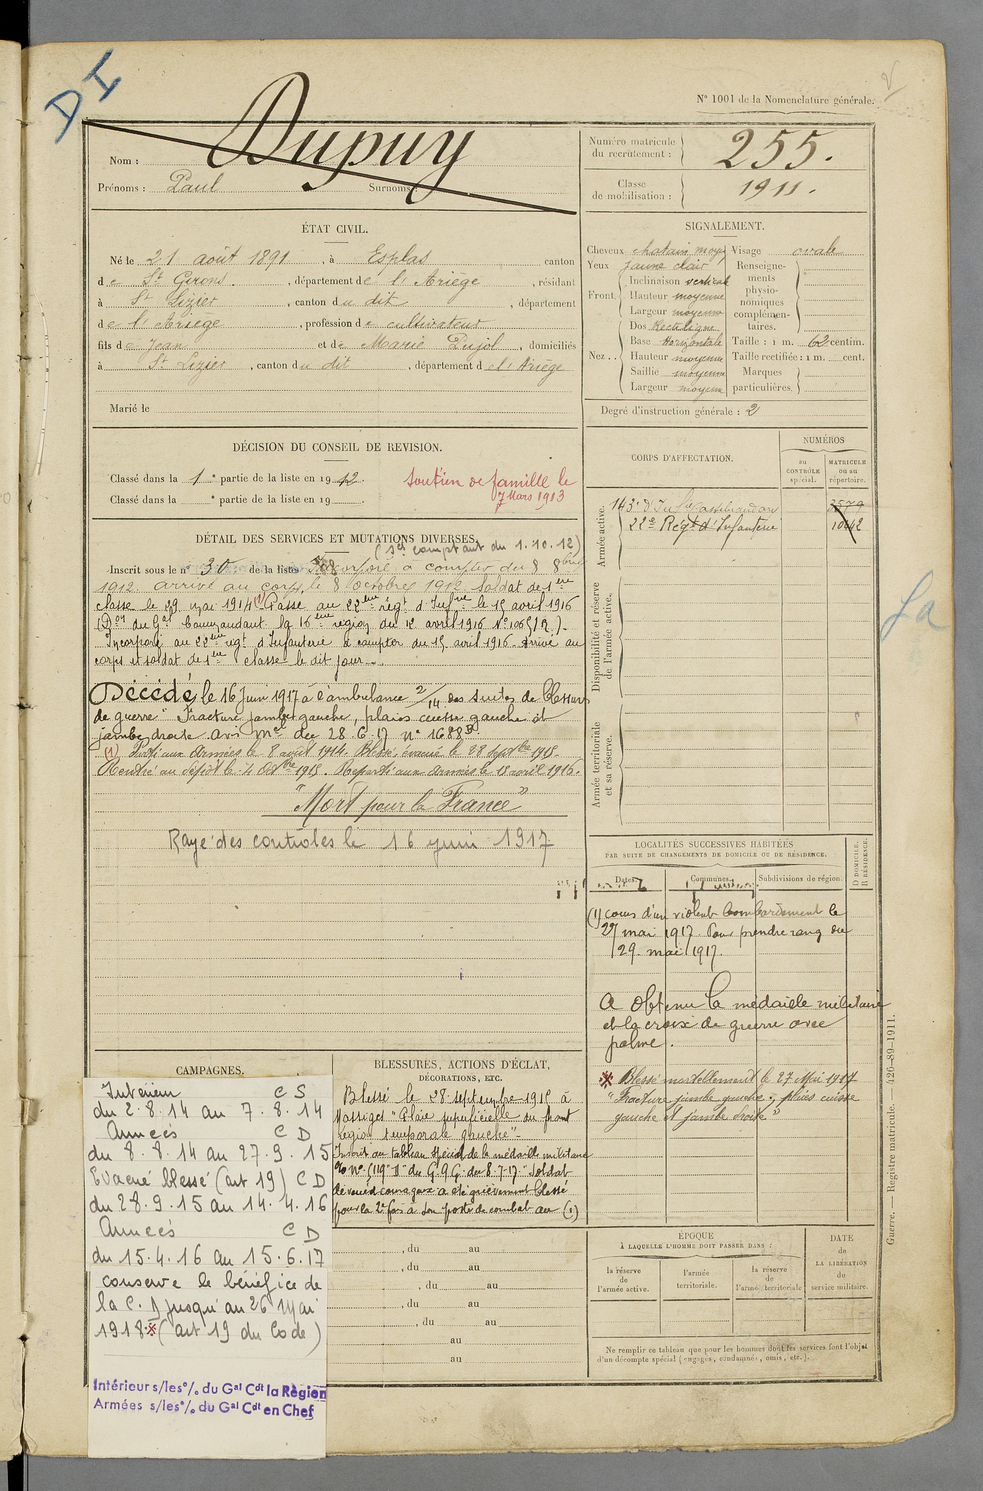 DI
N° 1001 de la Nomenclature générale.
Nom : Dupuy
Prénoms : Paul Surnoms :
Numéro matricule du recrutement : 255.
Classe de mobilisation : 1911.
ÉTAT CIVIL.
Né le 21 août 1891, à Esplas canton
de St Girons, département de l'Ariège, résidant
à St Lizier, canton du dit, département
de l'Ariège, profession de cultivateur
fils de Jean et de Marie Pujol, domiciliés
à St Lizier, canton du dit, département de l'Ariège
Marié le
SIGNALEMENT.
Cheveux chatain moyen Visage ovale
Yeux jaune clair
Front. Inclinaison vertical
Hauteur moyenne
Largeur moyenne
Nez.. Dos Rectiligne
Base Horizontale
Hauteur moyenne
Saillie moyenne
Largeur moyenne
Renseignements physionomiques complémentaires.
Taille : 1 m. 62 centim.
Taille rectifiée : 1 m. cent.
Marques particulières.
Degré d'instruction générale : 2
DÉCISION DU CONSEIL DE REVISION.
Classé dans la 1e partie de la liste en 1912.
Classé dans la e partie de la liste en 19 .
Soutien de famille le
7 Mars 1913
CORPS D'AFFECTATION.
NUMÉROS
au CONTRÔLE spécial.
MATRICULE ou au répertoire.
Armée active.
143e d'Infie
2579
22e Régt d'Infanterie
Disponibilité et réserve de l'armée active.
Armée territoriale et sa réserve.
DÉTAIL DES SERVICES ET MUTATIONS DIVERSES.
(Scs comptant du 1.10.12)
Inscrit sous le n° 30 de la liste Incorporé à compter du 8 8bre
1912 arrivé au corps le 8 Octobre 1912 Soldat de 1ère
classe le 29 mai 1914 (1) Passé au 22ème régt d'Infrie le 15 avril 1916
(Don du Gal Commandant la 16ème région du 12 avril 1916 N° 10651 R.)
Incorporé au 22ème régt d'Infanterie à compter du 15 avril 1916. Arrivé au
corps et soldat de 1ère classe le dit jour
Décédé le 16 juin 1917 à l'ambulance 2/14 des suites de blessures
de guerre "Fracture jambe gauche, plaies cuisse gauche et
jambe droite avis mel du 28.6.17 n° 1688 B
(1) Parti aux Armées le 8 août 1914. Blessé, évacué le 28 Septbre 1915.
Rentré au dépôt le 4 Octbre 1915. Reparti aux armées le 15 avril 1916.
"Mort pour la France"
Rayé des controles le 16 juin 1917
LOCALITÉS SUCCESSIVES HABITÉES
PAR SUITE DE CHANGEMENTS DE DOMICILE OU DE RÉSIDENCE.
Dates. Communes. Subdivisions de région.
D DOMICILE. R RÉSIDENCE.
(1) cours d'un violent bombardement le
27 mai 1917. Pour prendre rang du
29 mai 1917.
A obtenu la médaille militaire
et la croix de guerre avec
palme.
Blessé mortellement le 27 Mai 1917
"Fracture jambe gauche ; plaies cuisse
gauche et jambe droite"
CAMPAGNES.
Intérieur CS
du 2.8.14 au 7.8.14
Armées CD
du 8.8.14 au 27.9.15
Evacué blessé (art 19) CD
du 28.9.15 au 14.4.16
Armées CD
du 15.4.16 au 15.6.17
conserve le bénéfice de
la C.D jusqu'au 26 Mai
1918 (art 19 du Code)
Intérieur s/les°/. du Gal Cdt la Région
Armées s/les°/. du Gal Cdt en Chef
BLESSURES, ACTIONS D'ÉCLAT,
DÉCORATIONS, ETC.
Blessé le 28 septembre 1915 à
Massiges "Plaie superficielle du front
région temporale gauche".
Inscrit au tableau spécial de la médaille militaire
O/ N° (119 "D" du G.Q.G. du 8.7.17 "Soldat
dévoué et courageux a été grièvement blessé
pour la 2e fois à son poste de combat au (1)
, du au
, du au
, du au
, du au
, du au
au
au
ÉPOQUE
À LAQUELLE L'HOMME DOIT PASSER DANS :
la réserve de l'armée active.
l'armée territoriale.
la réserve de l'armée territoriale
DATE de LA LIBÉRATION du service militaire.
Ne remplir ce tableau que pour les hommes dont les services font l'objet
d'un décompte spécial (engagés, condamnés, omis, etc.).
Guerre. — Registre matricule. — 426-89-1911.